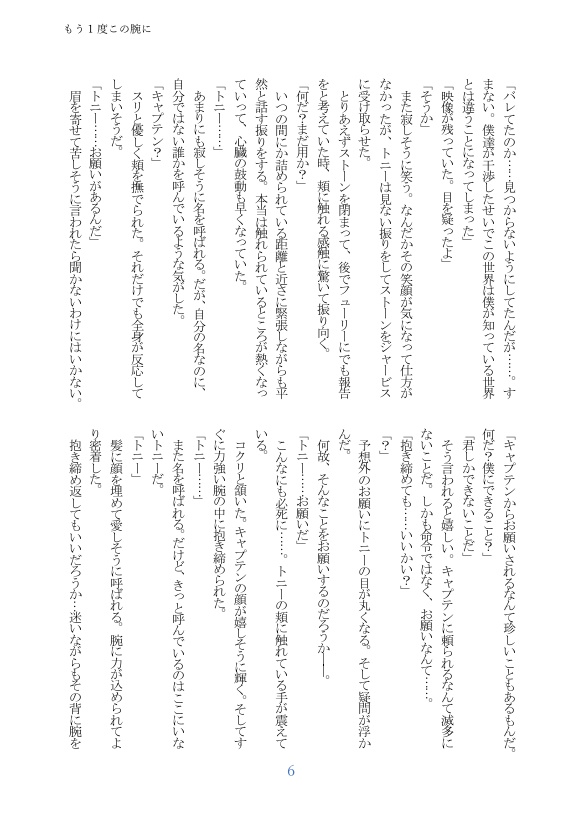 もう１度この腕に
「バレてたのか……見つからないようにしてたんだが……。す
まない。僕達が干渉したせいでこの世界は僕が知っている世界
とは違うことになってしまった」
「映像が残っていた。目を疑ったよ」
「そうか」
また寂しそうに笑う。なんだかその笑顔が気になって仕方が
なかったが、トニーは見ない振りをしてストーンをジャービス
に受け取らせた。
とりあえずストーンを閉まって、後でフューリーにでも報告
をと考えていた時、頬に触れる感触に驚いて振り向く。
「何だ？まだ用か？」
いつの間にか詰められている距離と近さに緊張しながらも平
然と話す振りをする。本当は触れられているところが熱くなっ
ていって、心臓の鼓動も早くなっていた。
「トニー……」
あまりにも寂しそうに名を呼ばれる。だが、自分の名なのに、
自分ではない誰かを呼んでいるような気がした。
「キャプテン？」
スリと優しく頬を撫でられた。それだけでも全身が反応して
しまいそうだ。
「トニー……お願いがあるんだ」
眉を寄せて苦しそうに言われたら聞かないわけにはいかない。
「キャプテンからお願いされるなんて珍しいこともあるもんだ。
何だ？僕にできること？」
「君しかできないことだ」
そう言われると嬉しい。キャプテンに頼られるなんて滅多に
ないことだ。しかも命令ではなく、お願いなんて……。
「抱き締めても……いいかい？」
「？」
予想外のお願いにトニーの目が丸くなる。そして疑問が浮か
んだ。
何故、そんなことをお願いするのだろうか――。
「トニー……お願いだ」
こんなにも必死に……。トニーの頬に触れている手が震えて
いる。
コクリと頷いた。キャプテンの顔が嬉しそうに輝く。そしてす
ぐに力強い腕の中に抱き締められた。
「トニー……」
また名を呼ばれる。だけど、きっと呼んでいるのはここにいな
いトニーだ。
「トニー」
髪に顔を埋めて愛しそうに呼ばれる。腕に力が込められてよ
り密着した。
抱き締め返してもいいだろうか…迷いながらもその背に腕を
6